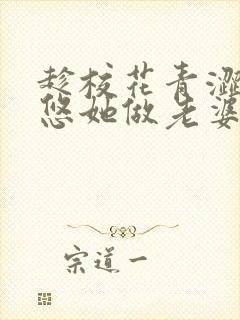 趁校花青澀
悠她做老婆
宗道一